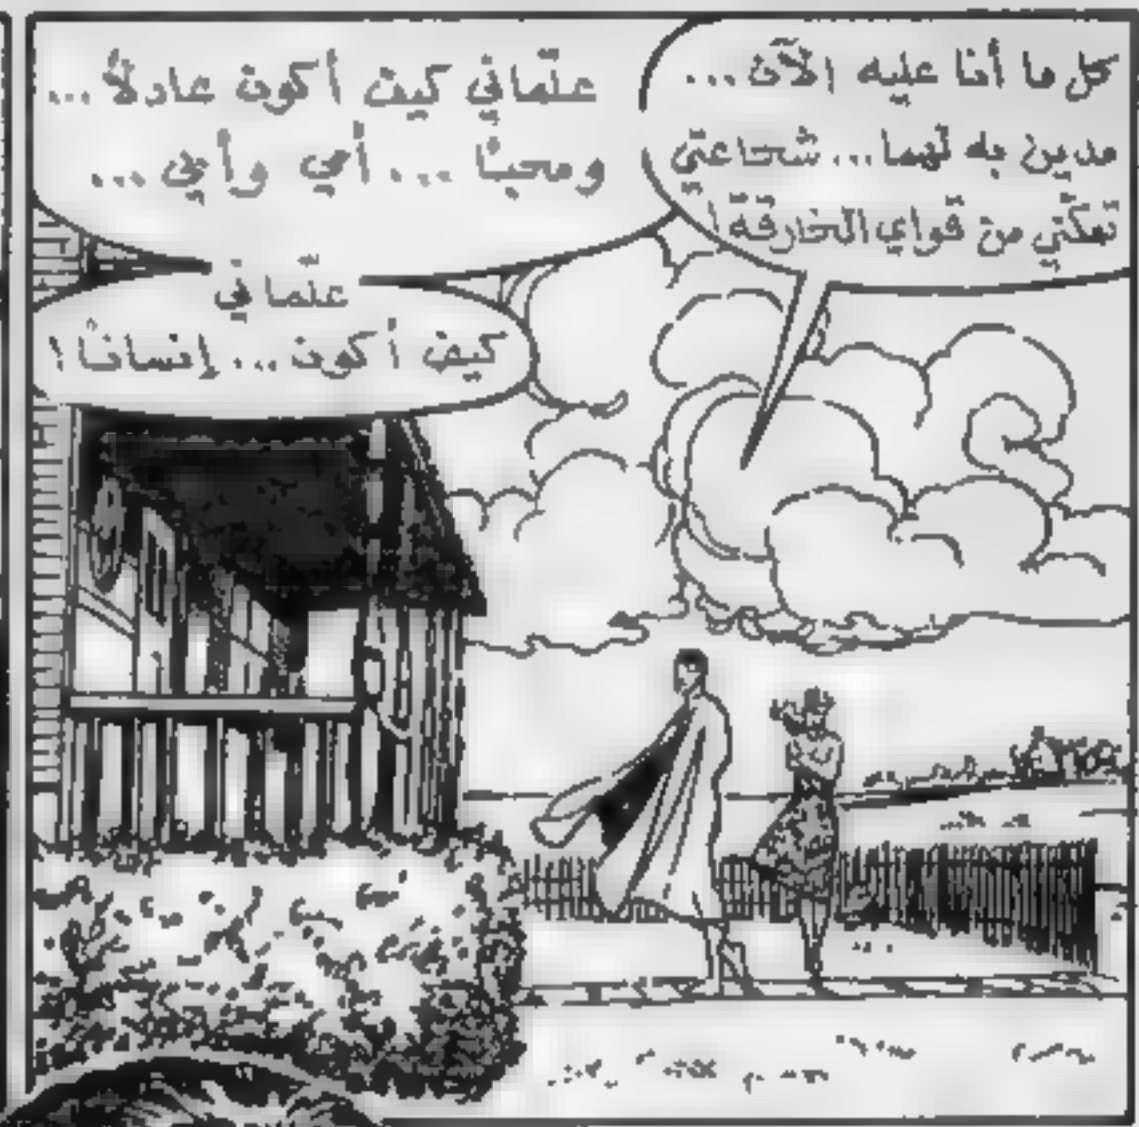 كل ما أنا عليه الآن...
مدين به لهما... شجاعتي
تمكّني من قواي الخارقة!
علّماني كيف أكون عادلاً...
ومحبّاً ... أمي وأبي ...
علّماني
كيف أكون ... إنساناً !